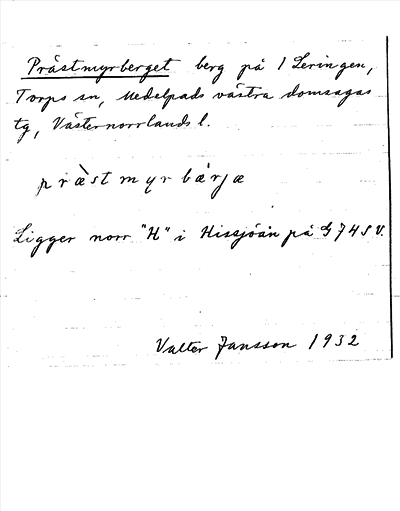 Prästmyrberget berg på 1 Leringen,
Torps sn, Medelpads västra domsagas
tg, Västernorrlands l.
præ̀stmyrbæ̀rjæ
Ligger norr "H" i Hissjöån på G 74 S V.
Valter Jansson 1932